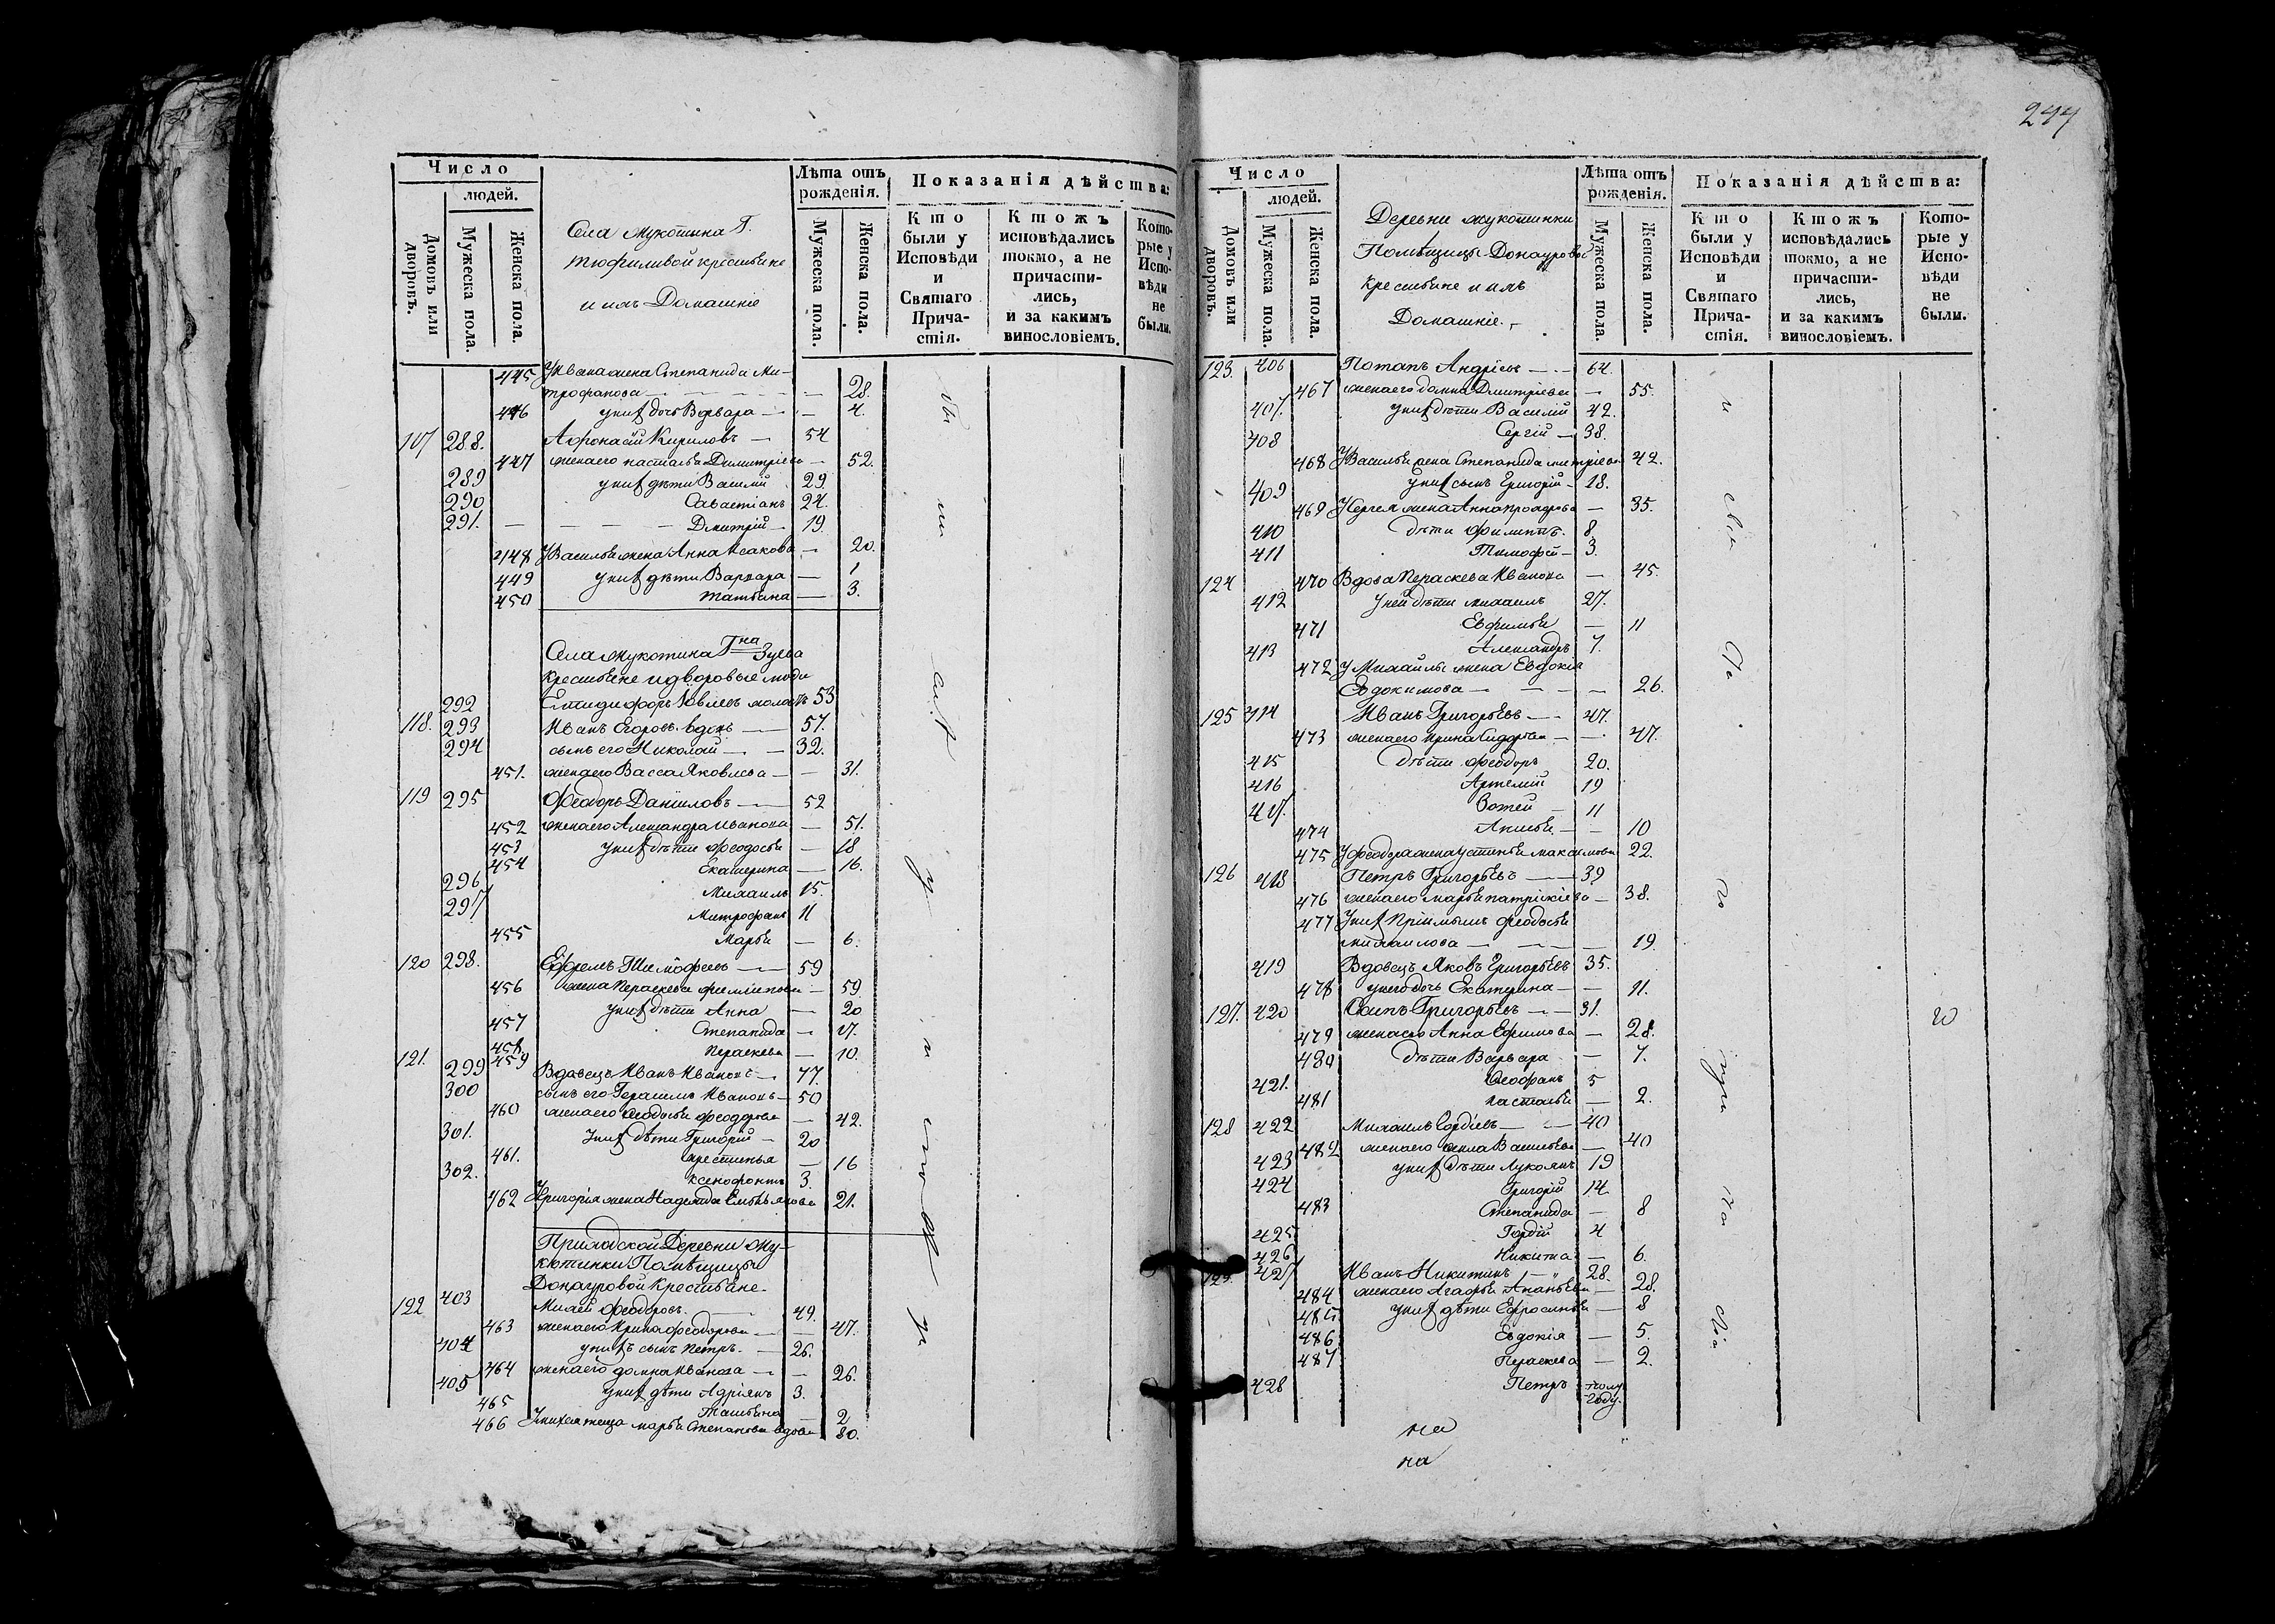 244
Число
людей.
Домовъ или дворовъ.
Мужеска пола.
Женска пола.
Села Мукотина Г.
крестьяне
и ихъ Домашніе
Лѣта отъ рожденія.
Мужеска пола.
Женска пола.
Показанія дѣйства:
Кто были у Исповѣди и Святаго Причастія.
Ктожъ исповѣдались токмо, а не причастились, и за какимъ винословіемъ.
Которые у Исповѣди не были.
445 У Ивана жена Степанида Ми-
трофанова — 28.
446 у них дочь Варвара — 4.
117 288. Афонасій Кириловъ — 54
447 жена его Настасья Димитріева — 52.
289 у них дѣти Василій 29.
290 Савастіанъ 24.
291. — Дмитрій 19.
448 У Василья жена Анна Исакова — 20.
449 у них дѣти Варвара — 1
450 Татьяна — 3.
Села Мукотина Г на Зуева
крестьяне и дворовые люди
292 53
118. 293 Иванъ Егоровъ вдовъ — 57.
294 сынъ его Николай — 32.
451. жена его Васса Яковлева — 31.
119 295 Феодоръ Даниловъ — 52
452 жена его Александра Иванова — 51.
453 у них дѣти Феодосья — 18
454 Екатерина — 16.
296 Михаилъ 15.
297 Митрофанъ 11
455 Марья — 6.
120 298. Ефремъ Тимофеевъ — 59
456 жена Параскева Филипова — 59.
у них дѣти Анна — 20
457 Степанида — 17.
458 Пераскева — 10.
121. 299 459 Вдовецъ Иванъ Ивановъ — 77.
300 сынъ его Герасимъ Ивановъ — 50
460 жена его Феодосья Феодорова — 42.
301. У них дѣти Григорій — 20
461. Христинья — 16
302. Ксенофонтъ 3.
462 У Григорія жена Надежда 21.
Приходской Деревни Му-
котинки Помѣщицы
Донауровой Крестьяне.
122 403 Михей Феодоровъ. 49.
463 жена его Ирина Феодорова — 47.
404 у нихъ сынъ Петръ. — 26.
464 жена его Домна Иванова — 26.
405 у них дѣти Адріянъ 3.
465 Татьяна — 2
466 У Михея теща Марья Степанова вдова 80.
Число
людей.
Домовъ или дворовъ.
Мужеска пола.
Женска пола.
Деревни Мукотинки
Помѣщицы Донауровой
крестьяне и ихъ
Домашніе.
Лѣта отъ рожденія.
Мужеска пола.
Женска пола.
Показанія дѣйства:
Кто были у Исповѣди и Святаго Причастія.
Ктожъ исповѣдались токмо, а не причастились, и за какимъ винословіемъ.
Которые у Исповѣди не были.
123. 406 Потапъ Андріевъ — 64.
467 жена его Домна Дмитріева — 55.
407. у них дѣти Василій 42.
408 Сергій — 38.
468 У Василья жена Степанида 42.
409 у них сынъ Григорій — 18.
469 У Сергея жена Анна — 35.
410 дѣти Филиппъ. 8
411 Тимофей — 3.
124 470 Вдова Пераскева Иванова — 45.
412 У ней дѣти Михаилъ 27.
471 Евфимья — 11
413 Александръ 7.
472 У Михайлы жена Евдокія
Евдокимова — 26.
125 414 Иванъ Григорьевъ — 47.
473 жена его Ирина — 47.
415 дѣти Феодоръ 20.
416 Артемій 19
417. 11
474 — 10
475 У Феодора жена Устинья Максимова 22.
126 418 Петръ Григорьевъ — 39
476 жена его Марья Патрикіева — 38.
477 У них Пріимышъ Феодосья
Михаилова — 19.
419 Вдовецъ Яковъ Григорьевъ 35.
478 у него дочь Екатерина — 11.
127. 420 Григорьевъ — 31.
479 жена его Анна Ефимова — 28.
480 дѣти Варвара — 7.
421. Феофанъ 5
481 Настасья — 2.
128 422 Михаилъ Гордіевъ — 40
482 жена его Васильева — 40
423 у них дѣти Лукоянъ 19
424 Григорій 14.
483 Степанида — 8
425 Гордій 4
426 Никита — 6.
129. 427 Иванъ Никитинъ — 28.
484 жена его Агафья Ананьева — 28.
485 у них дѣти Ефросинья — 8
486 Евдокія — 5.
487 Пераскева — 2.
428 Петръ полу
году.